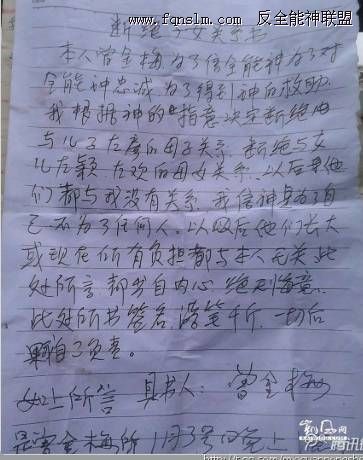 www.fqnslm.com 反全能神联盟
断绝子女关系书
本人曾金梅为了信全能神为了对
全能神忠诚为了得到神的救助
我根据神的"指意"决定断绝由
与儿子左彦的母子关系.断绝与女
儿左颖.左欢的母女关系.以后我他
们都与我没有关系.我信神是为了自
己不为了任何人.以及后他们长大
或现在所有负担都与本人无关.此
处所言都出自内心绝无悔意.
此处所书签名落笔千斤.一切后
果自己负责.
如上所言 具书人:曾金梅
是曾金梅所1月3号晚上
腾讯